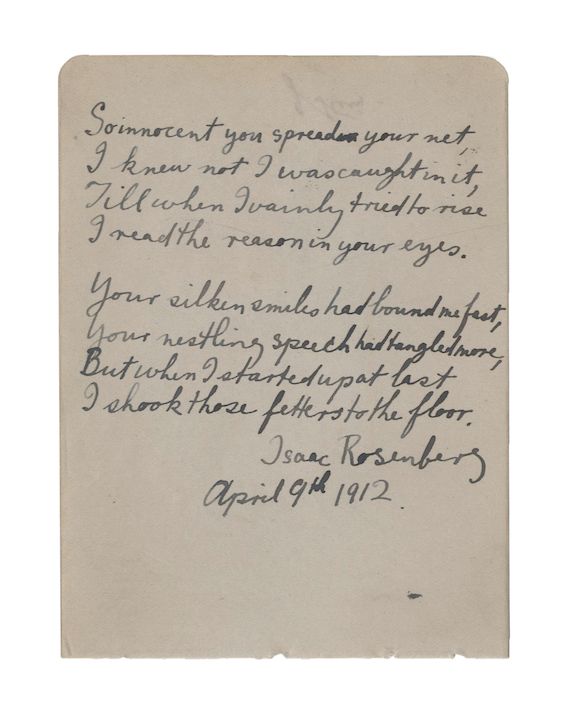 So innocent you spread your net,
I knew not I was caught in it,
Till when I vainly tried to rise
I read the reason in your eyes.
Your silken smiles had bound me fast,
Your nestling speech had tangled more,
But when I started up at last
I shook those fetters to the floor.
Isaac Rosenberg
April 9th 1912.